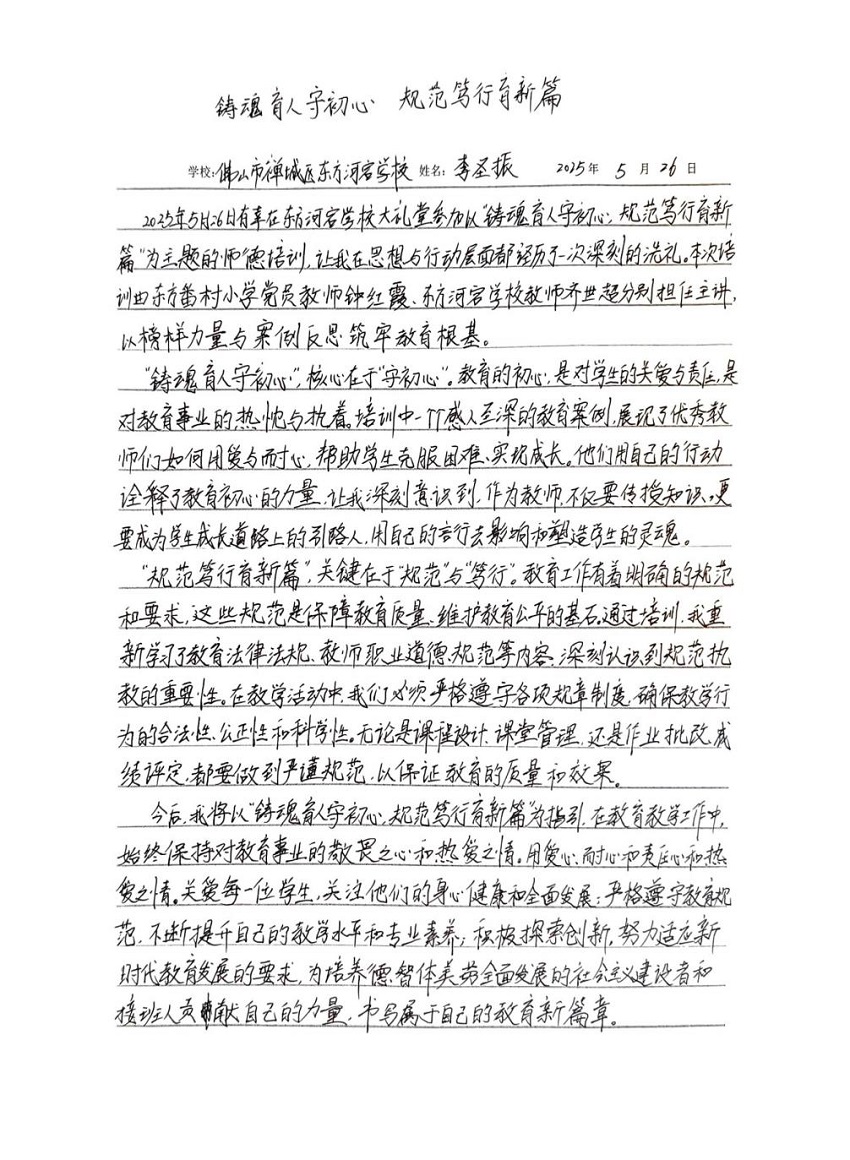 铸魂育人守初心 规范笃行育新篇
学校:佛山市禅城区东方河宕学校 姓名:李圣振 2025年 5 月 26 日
2025年5月26日有幸在东方河宕学校大礼堂参加以“铸魂育人守初心,规范笃行育新
篇”为主题的师德培训,让我在思想与行动层面都经历了一次深刻的洗礼。本次培
训由东方番村小学党员教师钟红霞、东方河宕学校教师齐世超分别担任主讲,
以榜样力量与案例反思筑牢教育根基。
“铸魂育人守初心”,核心在于“守初心”。教育的初心,是对学生的关爱与责任,是
对教育事业的热忱与执着。培训中一个个感人至深的教育案例,展现了优秀教
师们如何用爱与耐心,帮助学生克服困难、实现成长。他们用自己的行动
诠释了教育初心的力量,让我深刻意识到,作为教师,不仅要传授知识,更
要成为学生成长道路上的引路人,用自己的言行去影响和塑造学生的灵魂。
“规范笃行育新篇”,关键在于“规范”与“笃行”。教育工作有着明确的规范
和要求,这些规范是保障教育质量、维护教育公平的基石。通过培训,我重
新学习了教育法律法规、教师职业道德规范等内容,深刻认识到规范执
教的重要性。在教学活动中,我们必须严格遵守各项规章制度,确保教学行
为的合法性、公正性和科学性。无论是课程设计、课堂管理,还是作业批改、成
绩评定,都要做到严谨规范,以保证教育的质量和效果。
今后,我将以“铸魂育人守初心,规范笃行育新篇”为指引,在教育教学工作中,
始终保持对教育事业的敬畏之心和热爱之情。用爱心、耐心和责任心和热
爱之情。关爱每一位学生,关注他们的身心健康和全面发展;严格遵守教育规
范,不断提升自己的教学水平和专业素养;积极探索创新,努力适应新
时代教育发展的要求,为培养德智体美劳全面发展的社会主义建设者和
接班人贡献自己的力量,书写属于自己的教育新篇章。